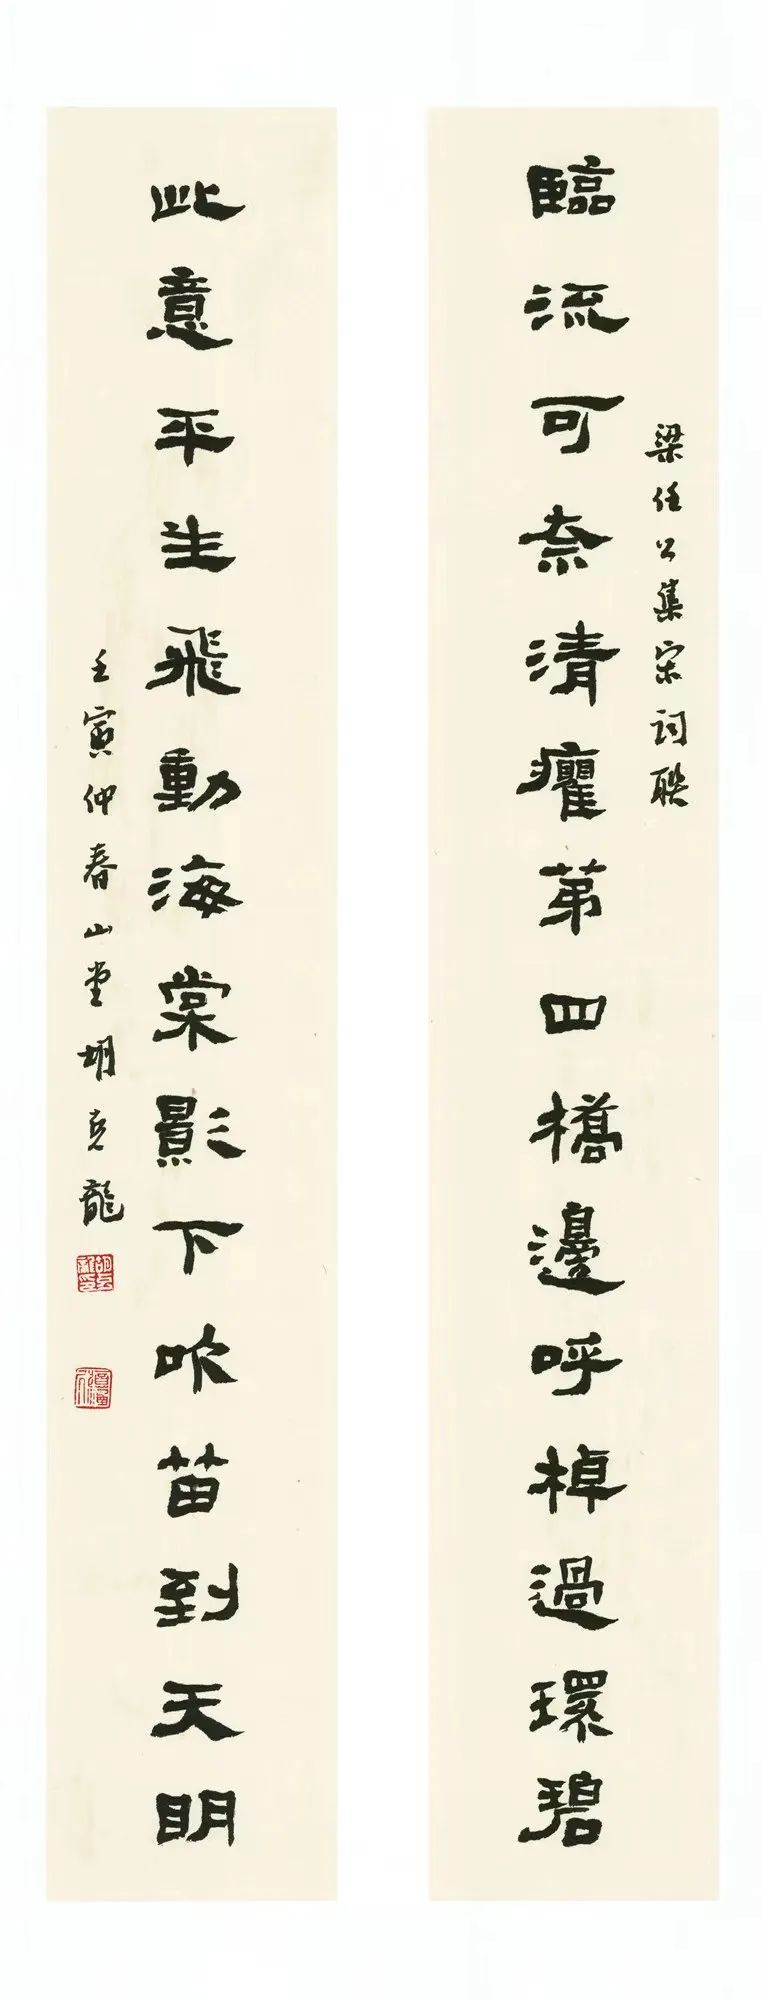 梁任公集宋詞聯
臨流可奈清癯第四橋邊呼棹過環碧
此意平生飛動海棠影下吹笛到天明
壬寅仲春山堂胡克龍